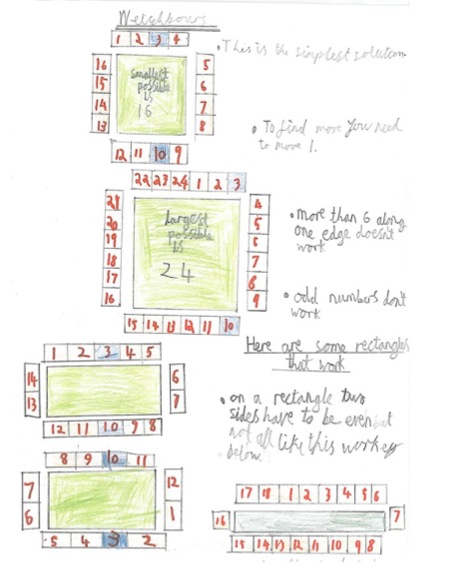 Neighbours
1 2 3 4
• This is the simplest solution.
16 5
15 6
14 7
13 8
smallest
possible
is
16
12 11 10 9
• To find more you need
to move 1.
22 23 24 1 2 3
21 4
20 5
19 6
18 7
17 8
16 9
largest
possible
is
24
15 14 13 12 11 10
• more than 6 along
one edge doesn't
work
• odd numbers don't
work
Here are some rectangles
that work
1 2 3 4 5
14 6
13 7
12 11 10 9 8
• on a rectangle two
sides have to be even but
not all like this worker
below.
8 9 10 11
7 12
6 1
5 4 3 2
17 18 1 2 3 4 5 6
16 7
15 14 13 12 11 10 9 8